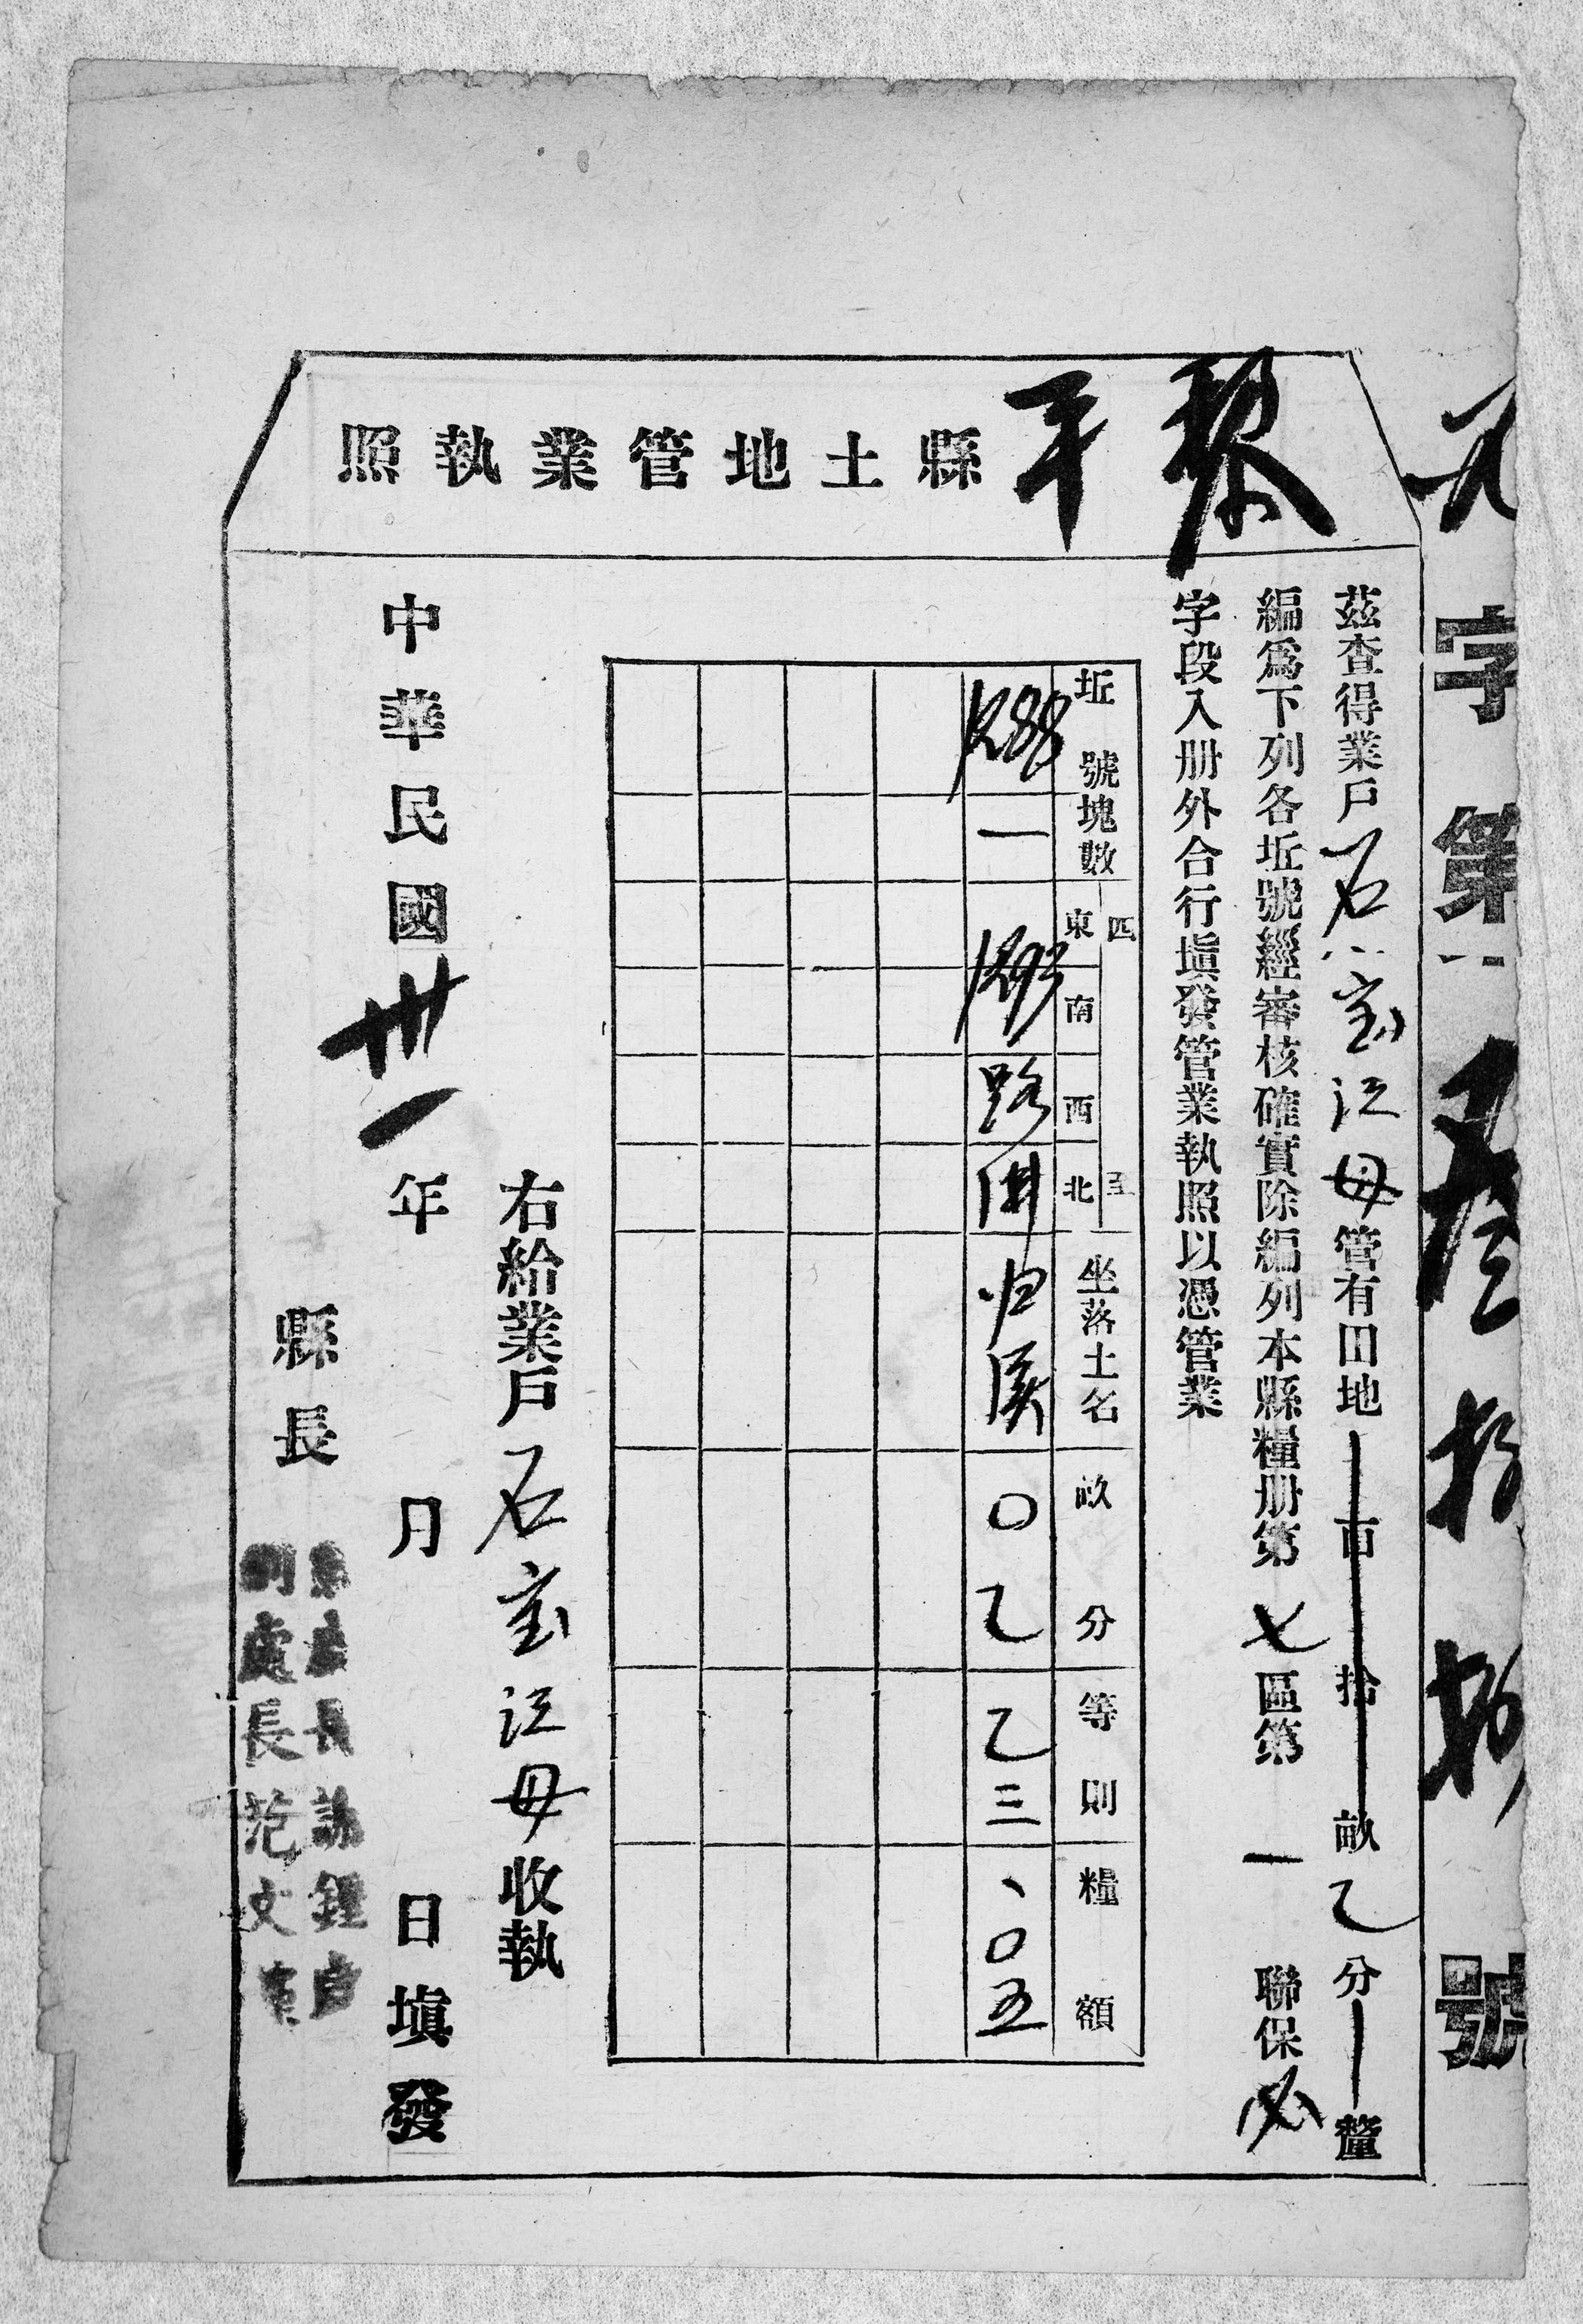 字第叁拾號
黎平縣土地管業執照
茲查得業戶石宝江母管有田地百拾畝乙分釐
編爲下列各坵號經審核確實除編列本縣糧册第七區第一聯保必
字段入册外合行塡發管業執照以憑管業
坵號 塊數 四至 東 南 西 北 坐落土名 畝分 等則 糧額
1288 一 1293 路 归 〇乙 乙三 、〇五
右給業戶石宝江母收執
中華民國卅一年 月 日塡發
縣長
副處長范文